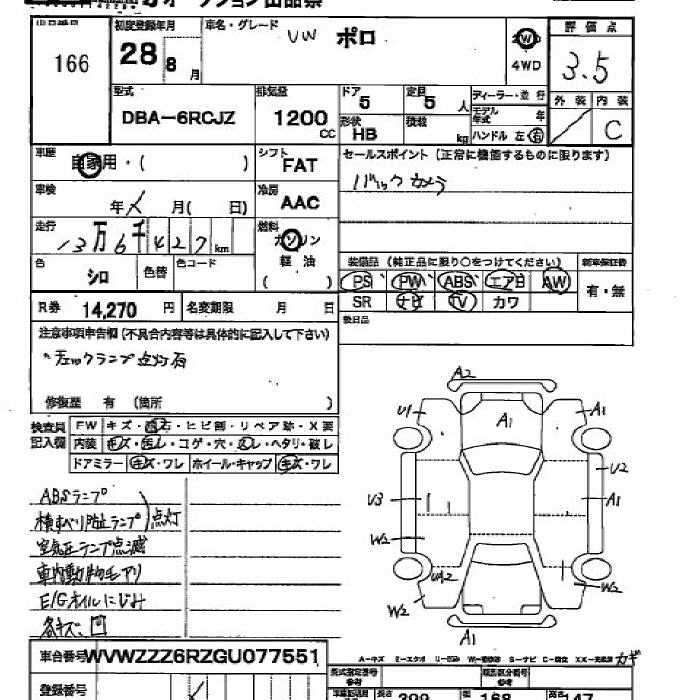 166
初度登録年月
28 8 月
車名・グレード
VW ポロ
2WD
4WD
評価点
3.5
外装 内装
C
型式
DBA-6RCJZ
排気量
1200 cc
ドア 5
定員 5 人
形状 HB
積載 kg
ディーラー・並行
モデル年式 年
ハンドル 左 右
車歴
自家用・( )
シフト FAT
セールスポイント (正常に機能するものに限ります)
バックカメラ
車検
年 月( 日)
冷房 AAC
走行
13万6千427km
燃料
ガソリン
軽油
( )
色 シロ
色替
色コード
装備品 (純正品に限り○をつけてください)
新車保証書
PS PW ABS エアB AW
有・無
SR ナビ TV カワ
後日品
R券 14,270 円
名変期限 月 日
注意事項申告欄 (不具合内容等は具体的に記入して下さい)
チェックランプ点灯有
修復歴 有 (箇所 )
検査員
記入欄
FW キズ・飛石・ヒビ割・リペア跡・X要
内装 キズ・汚レ・コゲ・穴・スレ・ヘタリ・破レ
ドアミラー キズ・ワレ ホイール・キャップ キズ・ワレ
ABSランプ
横すべり防止ランプ 点灯
空気圧ランプ点滅
車内動物毛アリ
E/Gオイルにじみ
各キズ、凹
A2
U1 A1 A1
U2
U3 A1
W2
UA2 W2
W2
A1
車台番号 WVWZZZ6RZGU077551
登録番号
型式指定番号
類別区分番号
長さ 399
幅 168
高さ 147